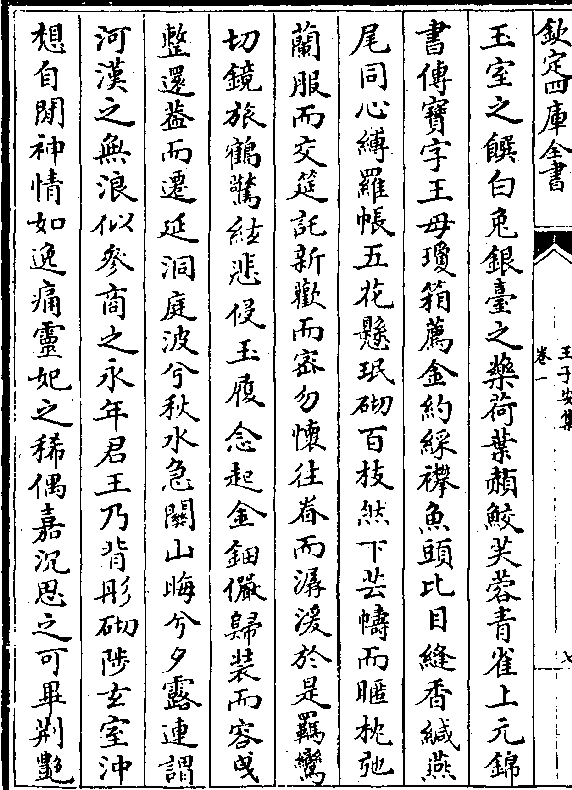 欽定四庫全書
王子安集
卷一
七
玉室之饌白兎銀臺之藥荷葉頳鮫芙蓉青雀上元錦
書傳寶字王母瓊箱薦金約綵襻魚頭比目縫香緘燕
尾同心縳羅帳五花懸珉砌百枝然下芸幬而暱枕弛
蘭服而交筵託新歡而密勿懷往眷而潺湲於是羈鸞
切鏡旅鶴驚絃悲侵玉履念起金鈿儼歸裝而容曵
整還葢而遷延洞庭波兮秋水急關山晦兮夕露連謂
河漢之無浪似參商之永年君王乃背彤砌陟玄室沖
想自閒神情如逸痛靈妃之稀偶嘉沉思之可畢荆艶